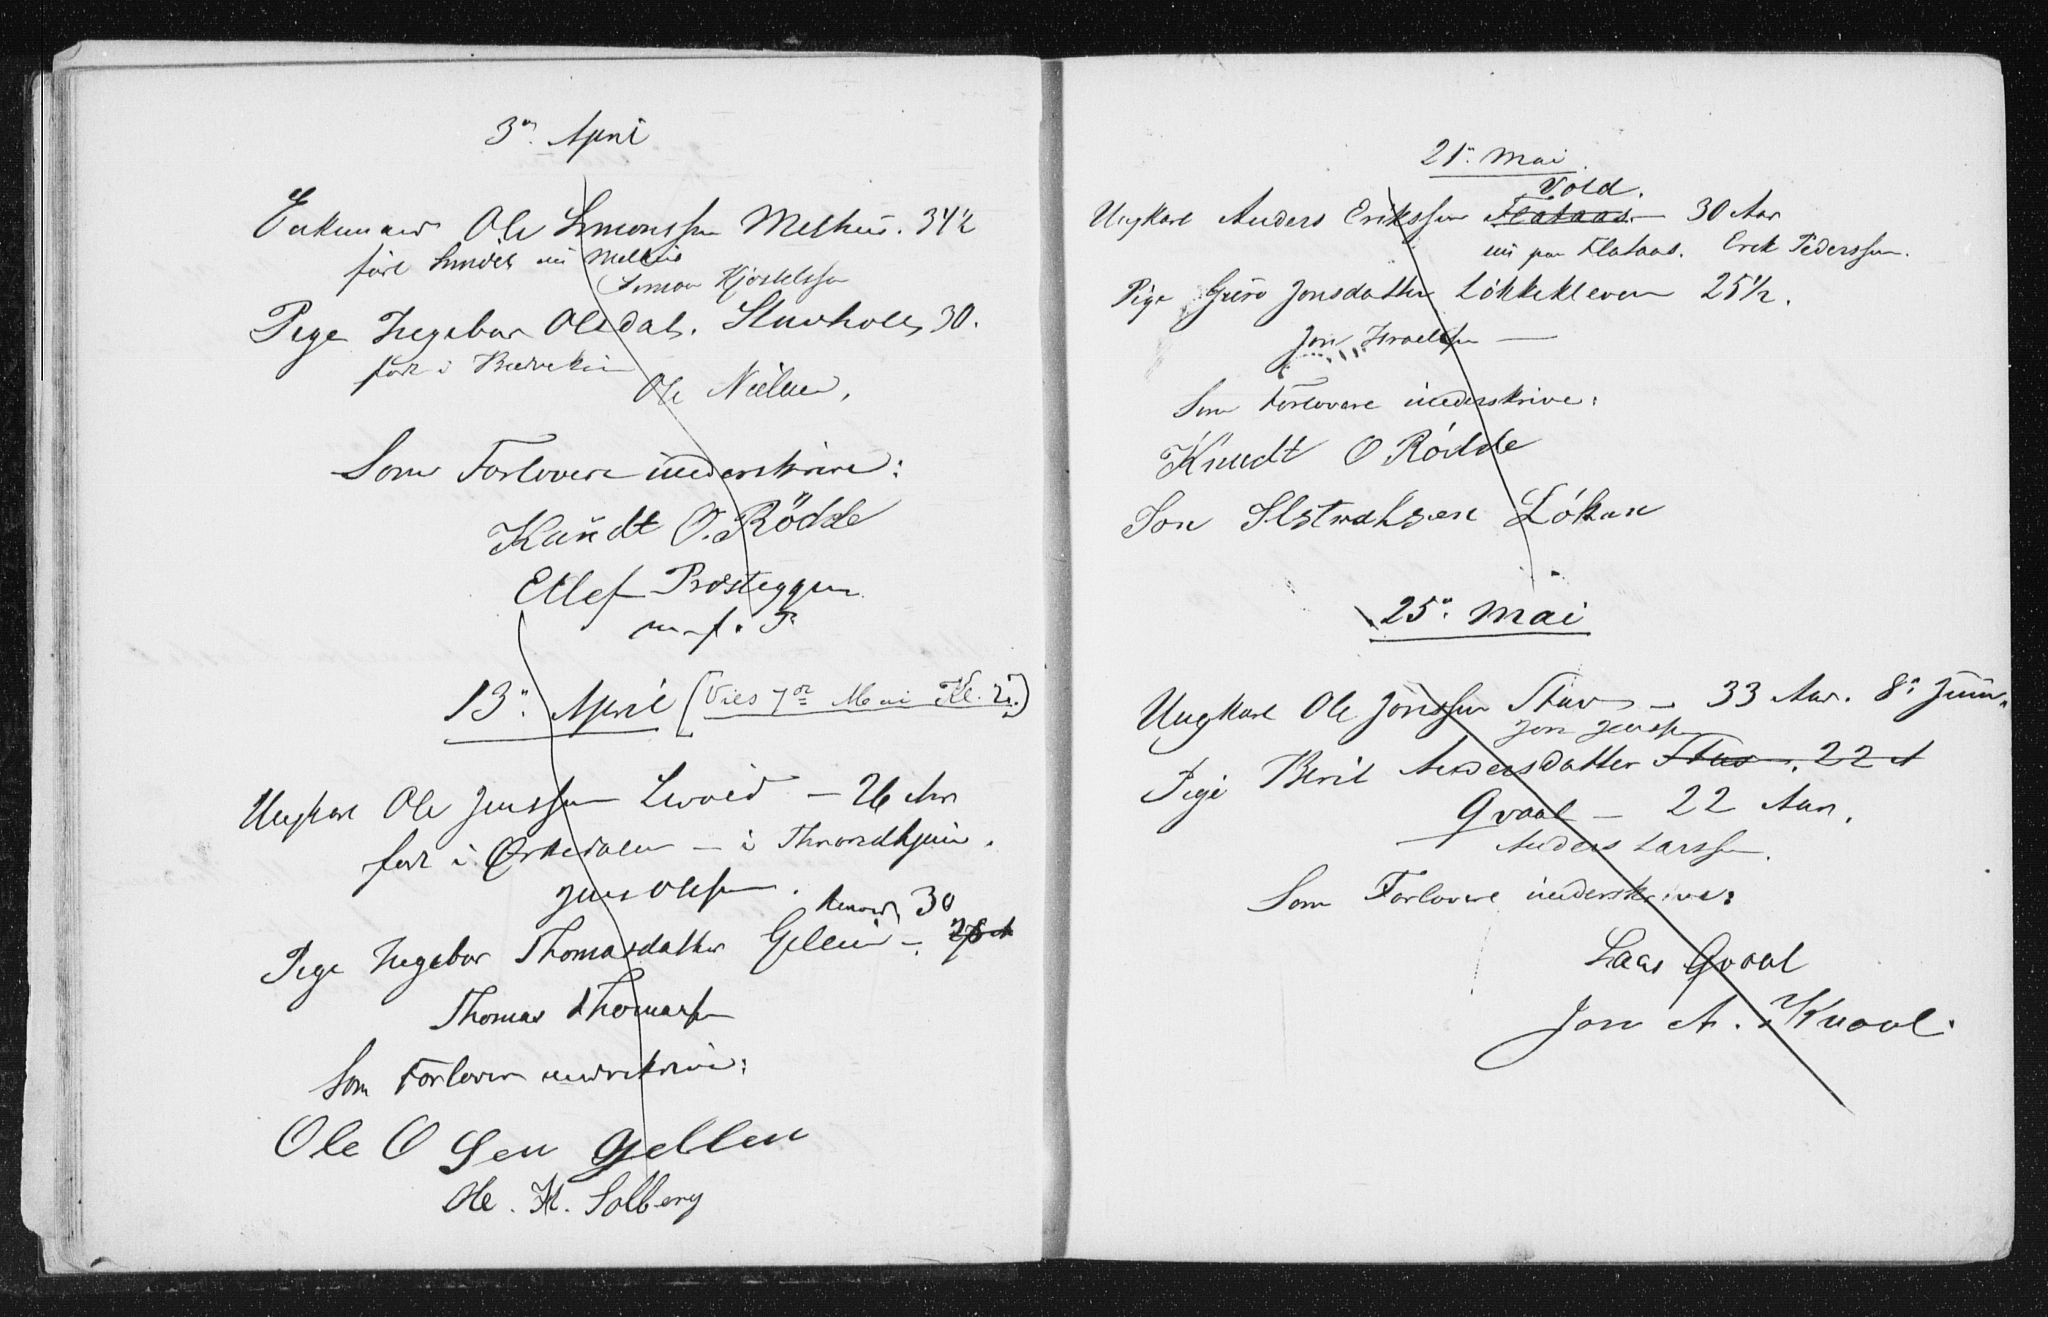 3ie April
Enkemand Ole Simonssen Melhus. 34½
född Lundet nu Melhus
Simon Kjöstelssen
Pige Ingebor Olsdat. Stavholt, 30.
född i
Ole Nielsen,
Som Forlovere underskrive:
Knŭdt O. Rödde
Ellef Prösteggen
m. f. P
13ie April (Vies 7de Mai Kl. 2.)
Ungkarl Ole Jenssen – 26 Aar
född i Ørkedalen – i Throndhjem.
Jens Olssen.
30
Pige Ingebor Thomasdatter Gellein – 28 A
Thomas Thomassen
Som Forlovere underskrive:
Ole O Sen Gellen
Ole. H. Solberg
21ie Mai
Vold.
Ungkarl Anders Erikssen Flataas – 30 Aar
nu paa Flataas. Erik Pederssen.
Pige Guro Jonsdatter Løkkekleven 25½.
Jon Israelssen —
Som Forlovere underskrive:
Knudt O Rödde
Jon Løkken
25ie Mai
Ungkarl Ole Jonssen Stav – 33 Aar. 8ie Juni.
Jon Jenssen
Pige Berit Andersdatter Stav. 22 A
Qvaal – 22 Aar.
Anders Larssen.
Som Forlovere underskrive:
Laas Qvaal
Jon A. Kvaal.